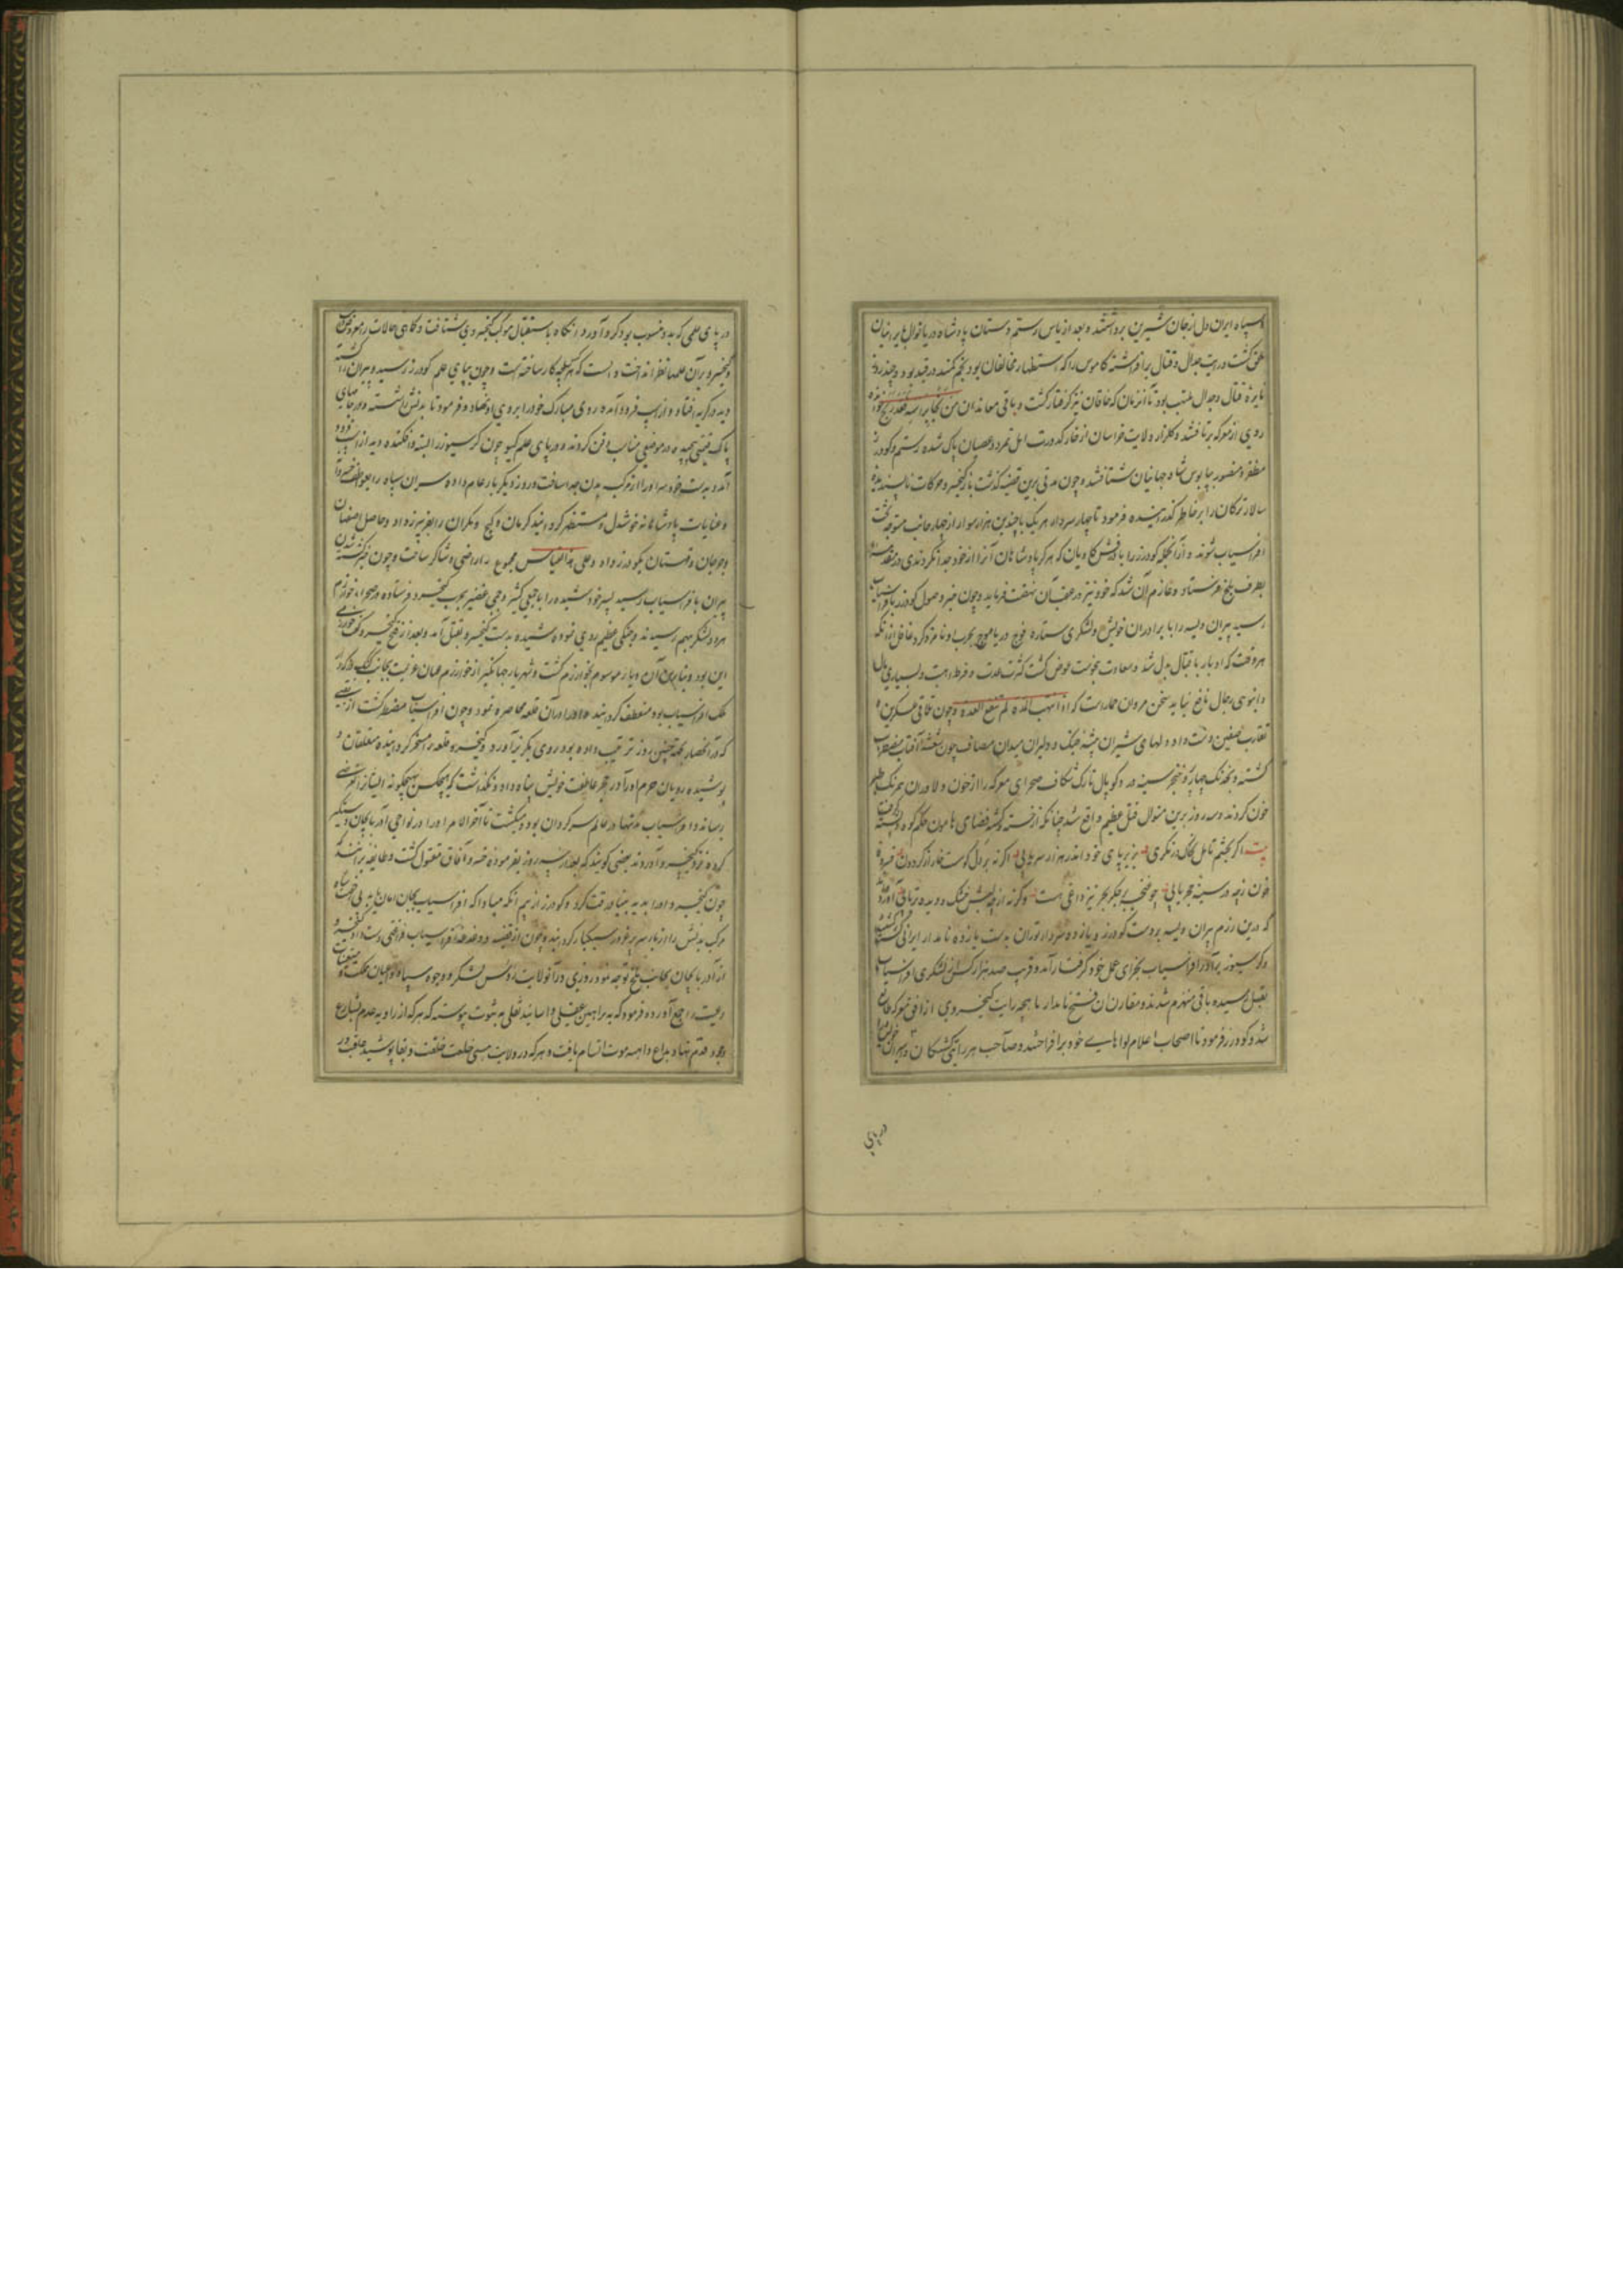 سپاه ایران دل از جان شیرین برداشتند و بعد از یاس رستم دستان پادشاه دریا نوال بایرانیان
ملحق گشت و رایت جدال و قتال برافراشته کاموس را که استظهار مخالفان بود بخم کمند در قید بود و چند روز
نایره قتال و جدال ملتهب بود تا آنزمان که خاقان نیز گرفتار گشت و باقی معاندان من نجا براسه فقد ربح خوانده
روی از معرکه برتافتند و گلزار ولایت خراسان از خار کدورت اهل تمرد و عصیان پاک شده رستم و کودرز
مظفر و منصور بپابوس شاه جهانیان شتافتند و چون مدتی برین قضیه گذشت باز کیخسرو حرکات ناپسندیده
سالار ترکان را بر خاطر گذرانیده فرمود تا چهار سردار هر یک با چندین هزار سوار از چهار جانب متوجه تخت
افراسیاب شوند و از آنجمله کودرز را با درفش کاویان که هرگز پادشاهان آنرا از خود جدا نکردندی در مقدمه
بطرف بلخ فرستاد و عازم آن شد که خود نیز در عقب آن نهضت فرماید و چون خبر وصول کودرز بافراسیاب
رسید پیران ویسه را با برادران خویش و لشکری ستاره فوج دریا موج بحرب او نامزد کرد غافل از آنکه
هر وقت که ادبار باقبال بدل شد و سعادت بنحوست عوض گشت کثرت عدت و فرط اهبت و بسیاری مال
و انبوهی رجال نافع نیاید سخن مردان ممارست که اذا انتهت المده لم تنفع العده و چون تلاقی عسکرین و
تقارب صفین دست داد و دلهای شیران بیشه جنگ و دلیران میدان مصاف چون شعشه آفتاب مضطرب
گشته و بخدنک چهارپر و خنجر سینه در و کوپال تارک شکاف صحرای معرکه را از خون دلاوران همرنک طبرخون
خون کردند و سه روز برین منوال قتل عظیم واقع شد چنانکه از خسته و کشته فضای هامون حکم کوه و پشته گرفت
بیت اگر بچشم تامل بخاک در نگری بزیر پای خود اندر هزار سر یابی اگر نه بر دل کوست خار از گردون
خون از چه در سینه حجر یابی چو خنجر بی جگر بحر نیز داغی هست وگرنه از چه لبش خشک و دیده تر یابی آورده‌اند
که درین رزم پیران ویسه بر دست کودرز و یازده سردار توران بدست یازده نامدار ایرانی کشته شد
و کرسیوز برادر افراسیاب بجزای عمل خود گرفتار آمد و قریب صد هزار کس از لشکری افراسیاب
بقتل رسیده باقی منهزم شدند و مقارن آن فتح نامدار ماهچه رایت کیخسروی از افق معرکه طالع
شد و کودرز فرمود تا اصحاب اعلام لواهای خود برافراختند و صاحب هر رایتی کشتگان و اسیران خویش را
در پای
در پای علمی که بدو منسوب بود گرد آورد و آنگاه باستقبال موکب کیخسروی شتافت و کماهی حالات را معروض
کیخسرو بر آن علمها نظر انداخت دانست که هر طبقه کار ساخته است و چون بپای علم کودرز رسید و پیران را کشته
دید در گریه افتاد و از اسب فرود آمده روی مبارک خود را بر روی او نهاد و فرمود تا بدنش را شسته و در جامهای
پاک قیمتی پیچیده در موضعی مناسب دفن کردند و در پای علم گیو چون کرسیوز را بسته و افکنده دید از اسب فرود
آمد و بدست خود سر او را از مرکب بدن جدا ساخت و روز دیگر بار عام داده سران سپاه را بعواطف خسروانه
و عنایات پادشاهانه خوشدل و مستظهر گردانید کرمان و کیج و مکران را بفریبرز داد و حاصل اصفهان
و جرجان و قهستان بکودرز داد و علی هذا القیاس مجموع را راضی و شاکر ساخت و چون خبر کشته شدن
پیران بافراسیاب رسید پسر خود شیده را با جمعی کثیر و جمی غفیر بحرب کیخسرو فرستاده و صحراء خوارزم
هر دو لشکر بهم رسیدند و جنگی عظیم روی نموده شیده بدست کیخسرو بقتل آمد و بعد از فتح کیخسرو گفت خوارزمی
این بود و بنابرین آن دیار موسوم بخوارزم گشت و شهریار جهانگیر از خوارزم عنان عزیمت بجانب گنگ دژ که دار
ملک افراسیاب بود منعطف گردانید و او را در آن قلعه محاصره نمود و چون افراسیاب مضطر گشت از نقبی
که در آن حصار بجهة چنین روز ترتیب داده بود روی بگریز آورد و کیخسرو قلعه را مسخر گردانیده متعلقان و
پوشیده رویان حرم او را در حجر عاطفت خویش پناه داد و نگذاشت که هیچکس بهیچگونه ایشانرا تعرضی
رساند و افراسیاب تنها در عالم سرگردان بود و میگشت تا آخرالامر او را در نواحی آذربایجان دستگیر
کرده نزد کیخسرو آوردند بعضی گویند که بعد از سه روز بفرموده خسرو آفاق مقتول گشت و طایفه بر آنند که
چون کیخسرو او را بدید بنیاد رقت کرد و کودرز از بیم آنکه مبادا که افراسیاب بجان امان یابد بی رخصت شاه
مرکب بدنش را از بار سر پرغرور سبکبار گردانید و چون از قضیه و دغدغه افراسیاب فراغتی دست داد کیخسرو
از آذربایجان بجانب بلخ توجه نمود و روزی در آنولایت رؤس لشکر و وجوه سپاه و اعیان مملکت و متعینان
رعیت را جمع آورده فرمود که ببراهین عقلی و اسانید نقلی بثبوت پیوسته که هر که از زاویه عدم بشارع
وجود قدم نهاد بداغ داهیه موت اتسام یافت و هر که در ولایت هستی خلعت خلقت و بقا پوشید عاقبت در